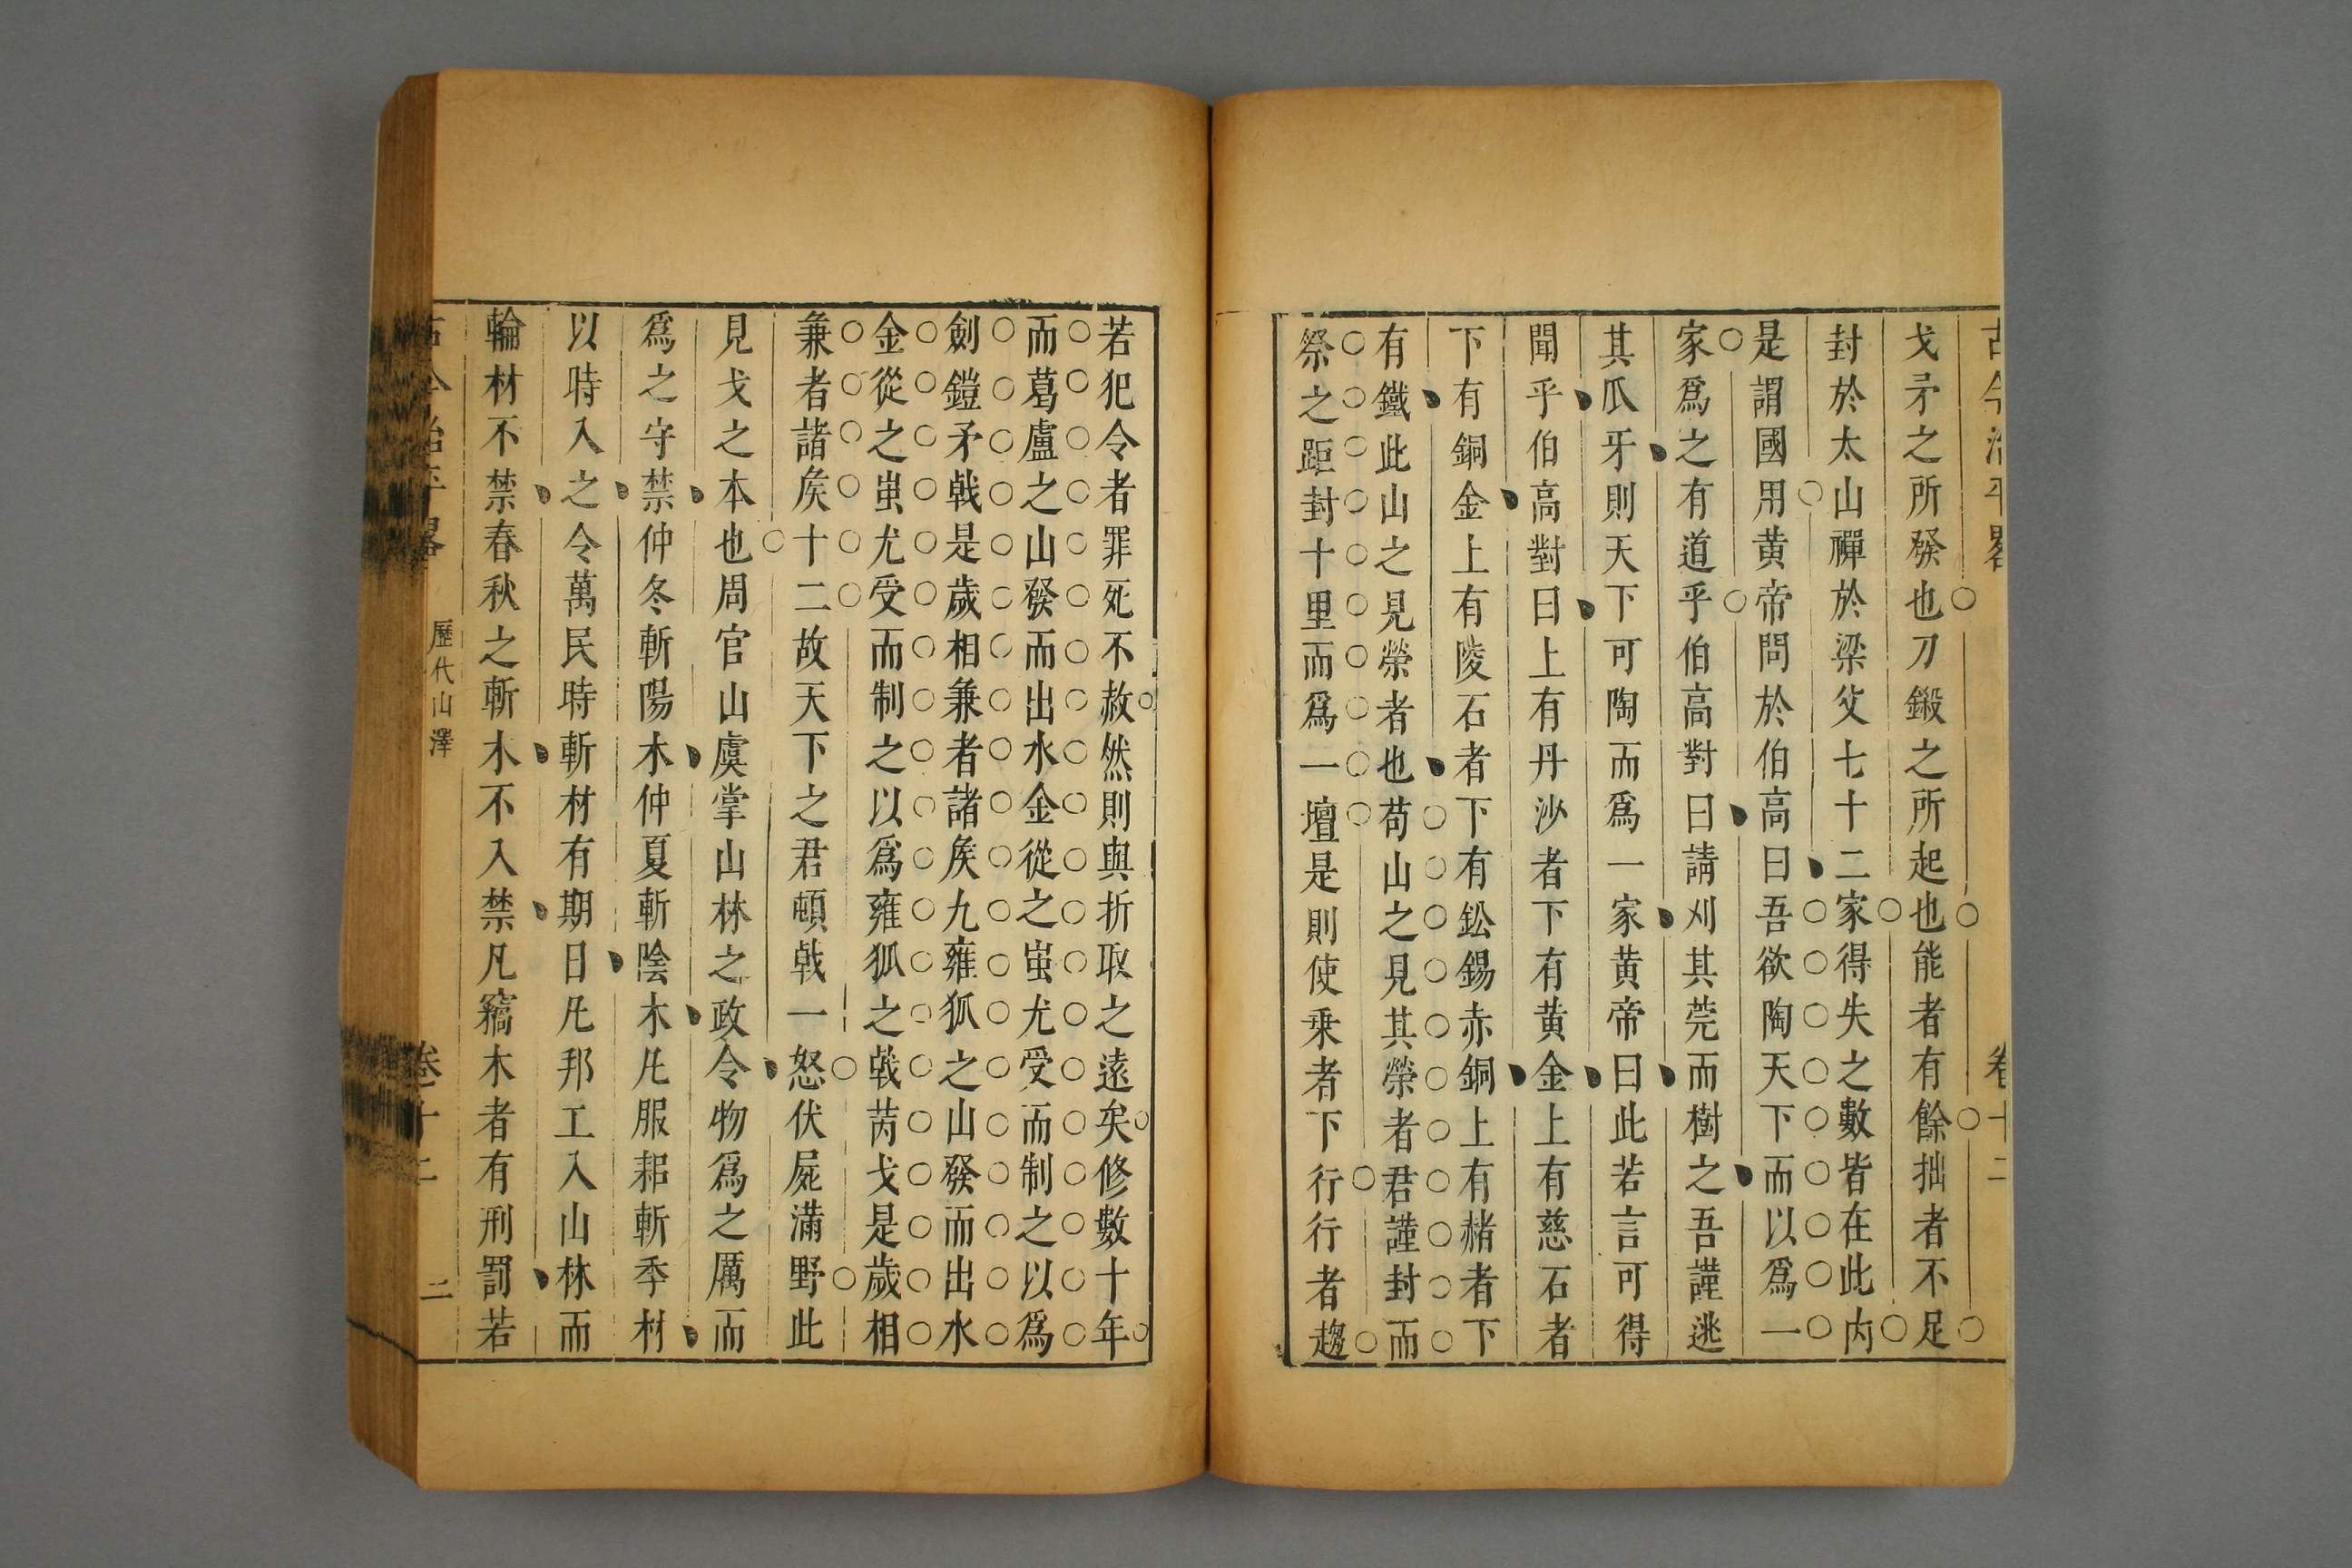 古今治平畧　卷十二
戈矛之所發也刀鍛之所起也能者有餘拙者不足
封於太山禪於梁父七十二家得失之數皆在此內
是謂國用黄帝問於伯高曰吾欲陶天下而以爲一
家爲之有道乎伯高對曰請刈其莞而樹之吾謹逃
其瓜牙則天下可陶而爲一家黄帝曰此若言可得
聞乎伯高對曰上有丹沙者下有黄金上有慈石者
下有銅金上有陵石者下有鈆錫赤銅上有赭者下
有鐵此山之見榮者也苟山之見其榮者君謹封而
祭之距封十里而爲一壇是則使乗者下行行者趨
若犯令者罪死不赦然則與折取之遠矣修數十年
而葛盧之山發而出水金從之蚩尤受而制之以爲
劍鎧矛戟是歲相兼者諸矦九雍狐之山發而出水
金從之蚩尤受而制之以爲雍狐之戟芮戈是歲相
兼者諸矦十二故天下之君頓戟一怒伏屍滿野此
見戈之本也周官山虞掌山林之政令物爲之厲而
爲之守禁仲冬斬陽木仲夏斬陰木凡服耜斬季材
以時入之令萬民時斬材有期日凡邦工入山林而
輪材不禁春秋之斬木不入禁凡竊木者有刑罰若
古今治平畧　歷代山澤　卷十二　二